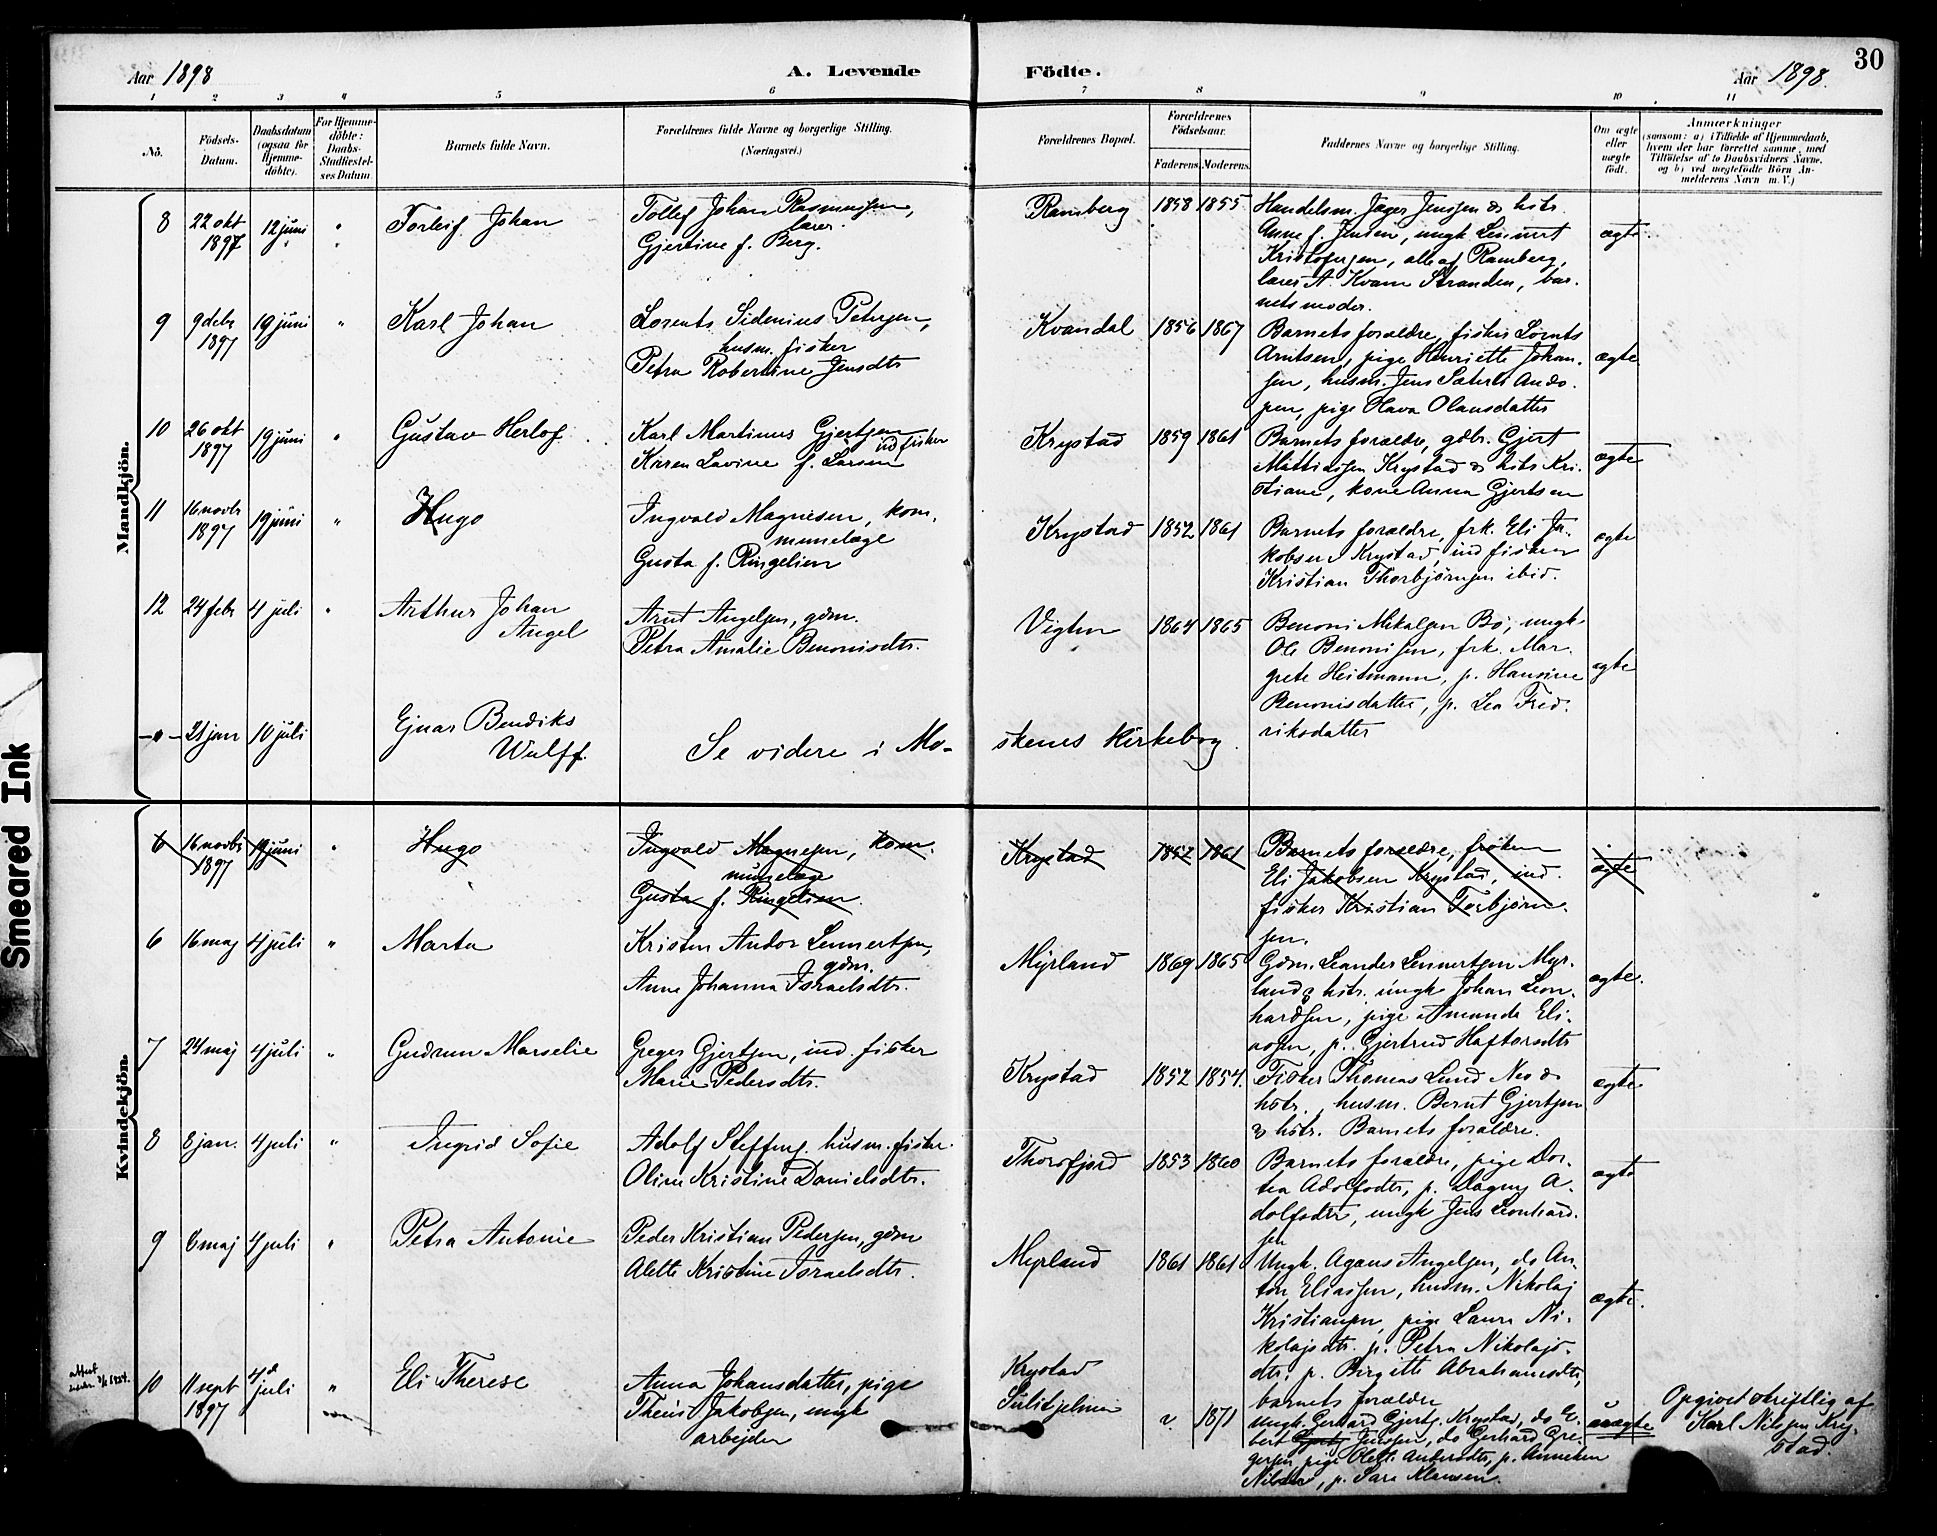 Aar 1898
A. Levende
Födte.
Aar 1898.
30
1 2 3 4 5 6 7 8 9 10 11
No.
Födsels-
Datum.
Daabsdatum
(ogsaa for
Hjemme-
döbte).
For Hjemme-
döbte:
Daabs-
Stadfæstel-
ses Datum.
Barnets fulde Navn.
Forældrenes fulde Navne og borgerlige Stilling.
(Næringsvei.)
Forældrenes Bopæl.
Forældrenes
Födselsaar.
Faderens. Moderens.
Faddernes Navne og borgerlige Stilling.
Om ægte
eller
uægte
født.
Anmærkninger
(saasom: a) i Tilfælde af Hjemmedaab,
hvem der har forrettet samme, med
Tilföielse af to Daabsvidners Navne,
og b) ved uægtefödte Börn An-
melderens Navn m. V.)
Mandkjön.
8
22 okt
1897
12 juni
Torleif Johan
Tollef Johan Rasmussen,
lærer.
Gjertine f. Berg.
Ramberg
1858
1855
Handelsm. Jæger Jenssen & hstr.
Anne f. Jensen, ungk. Lennert
Kristofersen, alle af Ramberg,
lærer A. Kvam Stranden, bar-
nets moder.
ægte.
9
9 debr
1897
19 juni
Karl Johan
Lorents Sidenius Petersen,
husm. fisker
Petra Robertine Jensdtr
Kvandal
1856
1867
Barnets forældre, fisker Lornts
Arntsen, pige Henriette Johan-
sen, husm. Jens Sæterts Ando-
pen, pige Hava Olausdatter
ægte
10
26 okt
1897
19 juni
Gustav Herlof
Karl Martinus Gjertsen
ind fisker
Karen Lavine f. Larsen
Krystad
1859
1861
Barnets forældre, gdbr. Gjert
Mattissen Krystad & hstr Kri-
stiane, kone Anna Gjertsen
ægte
11
16 novbr
1897
19 juni
Hugo
Ingvald Magnesen, kom-
munelæge
Gusta f. Ringelien
Krystad
1852
1861
Barnets forældre, frk. Eli Ja-
kobsen Krystad, ind fisker
Kristian Thorbjørnsen ibid.
ægte
12
24 febr
4 juli
Arthur Johan
Angel
Arnt Angelsen, gdm.
Petra Amalie Benonisdtr.
Vigten
1864
1865
Benoni Mikalsen Bø, ungk.
Ole Benonisen, frk. Mar-
grete Heitmann, p. Hansine
Benonisdatter, p. Lea Fred-
riksdatter
ægte
-"-
21 jan
10 juli
Ejnar Bendiks
Wulff.
Se videre i Mo-
skenes Kirkebog
Kvindekjön.
6
16 novbr
1897
19 juni
Hugo
Ingvald Magnesen, kom-
munelæge
Gusta f. Ringelien.
Krystad
1852
1861
Barnets forældre, frøken
Eli Jakobsen Krystad, ind.
fisker Kristian Torbjørn-
sen.
ægte
6
16 maj
4 juli
Marta
Kristen Andor Lennertsen,
gdm.
Anne Johanna Israelsdtr.
Myrland
1869
1865
Gdm. Leander Lennertsen Myr-
land & hstr. ungk Johan Leon-
hardsen, pige Amanda Eli-
asen, p. Gjertrud Haftorsdtr
ægte.
7
24 maj
4 juli
Gudrun Marselie
Greger Gjertsen, ind. fisker
Marie Pedersdtr.
Krystad
1852
1854.
Fisker Thomas Lund Nes &
hstr., husm. Bernt Gjertsen
& hstr. Barnets forældre.
ægte
8
8 jan.
4 juli
Ingrid Sofie
Adolf Steffens. husm. fisker.
Oline Kristine Danielsdtr.
Thorsfjord
1853
1860
Barnets forældre, pige Dor-
tea Adolfsdtr, p. Dagny A-
dolfsdtr, ungk Jens Leonhard-
sen
ægte
9
6 maj
4 juli
Petra Antonie
Peder Kristian Pedersen, gdm
Alette Kristine Israelsdtr.
Myrland
1861
1861
Ungk. Agaus Angelsen, do An-
ton Eliassen, husm. Nikolaj
Kristiansen, pige Laura Ni-
kolajsdtr. p. Petra Nikolajs-
dtr, p. Birgitte Abrahamsdtr,
barnets forældre
ægte.
attest
10
11 sept
1897
4de
juli
Eli Therese
Anna Johansdatter, pige
Jakobsen, ungk
arbejder
Krystad
Sulitjelma
1871
ungk. Gerhard Gjerts. Krystad, do E-
bert Jenssen, do Gerhard Gre-
gersen, pige Andersdtr, p. Anneken
Nilsen, p. Sara Klausen.
uægte
Opgivet skriftlig af
Karl Nilssen Kry-
stad.
Smeared Ink